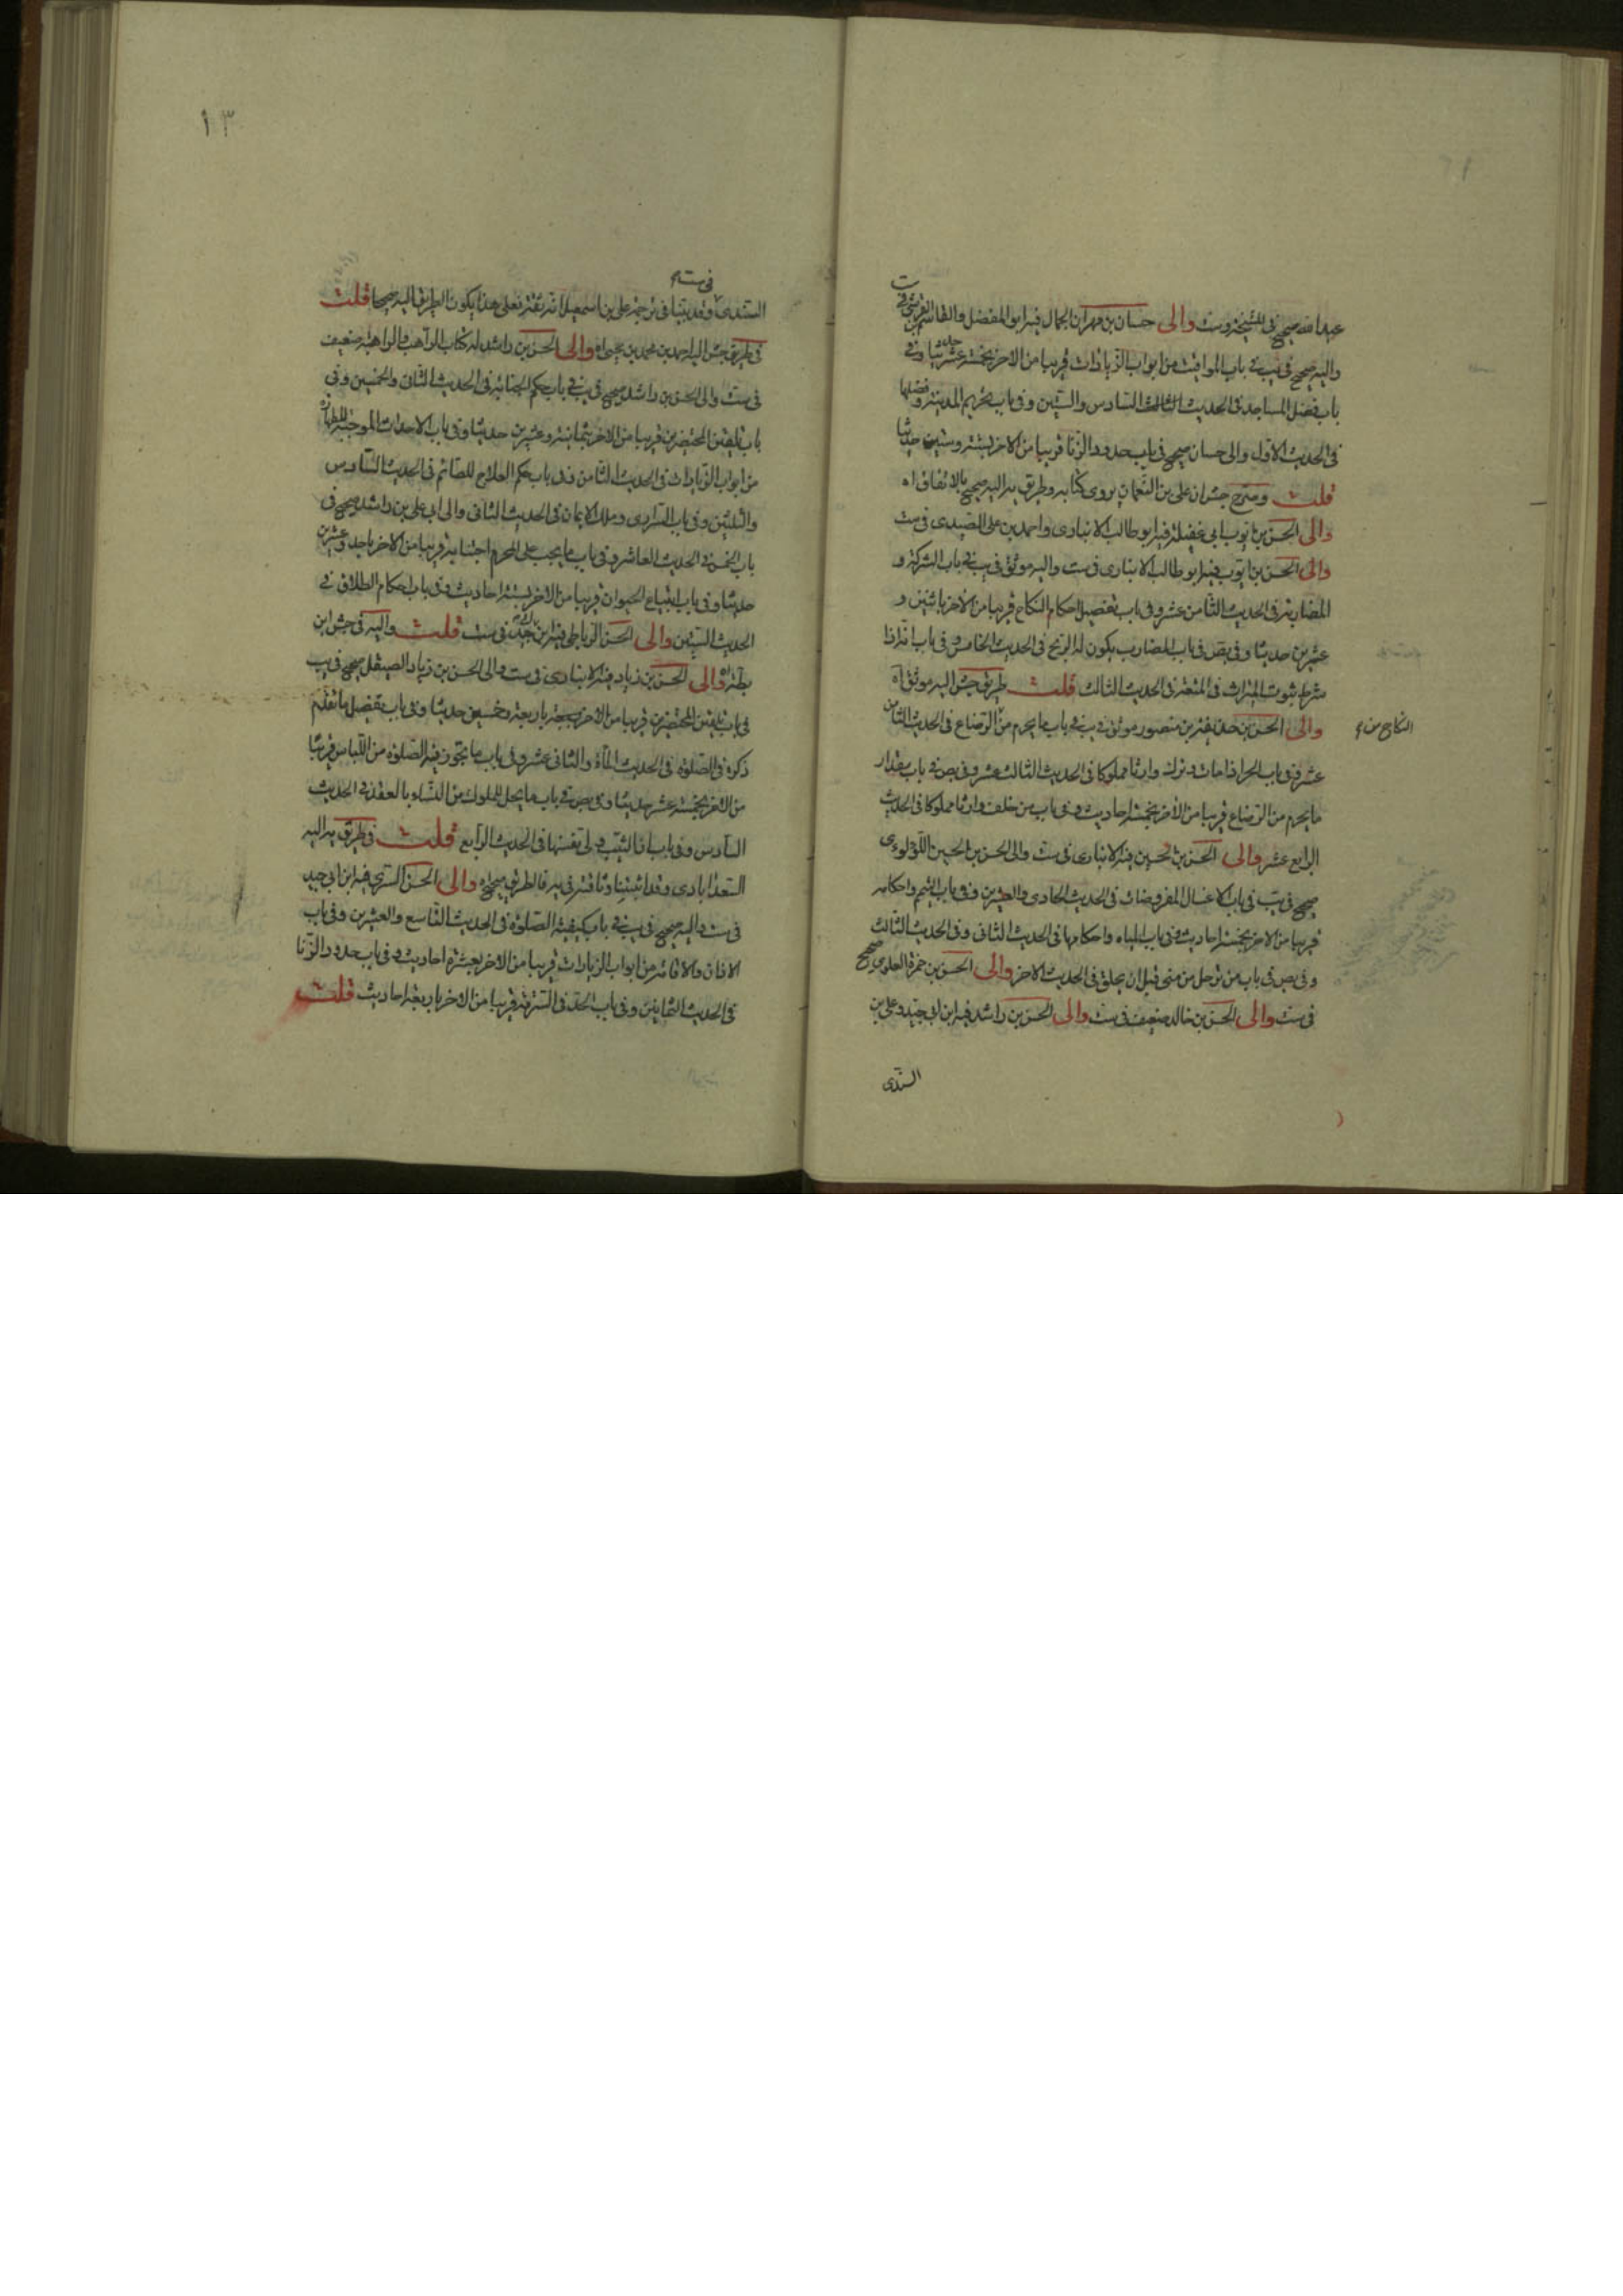 عبد الله صحيح في المشيخة وست والى حسان بن مهران الجمال فيه ابو المفضل والقاسم
واليه صحيح في يب في باب المواقيت من ابواب الزيادات قريبا من الاخر بخمسة عشر حديثا وفي
باب فضل المساجد في الحديث السادس والستين وفي باب تحريم المدينة وفضلها
في الحديث الاول والى حسان صحيح في باب حدود الزنا قريبا من الاخر بستة وستين حديثا
قلت وصرح جش ان علي بن النعمان يروي كتابه وطريق يه اليه صحيح بالاتفاق اه
والى الحسن بن ايوب ابي غفيلة فيه ابو طالب الانباري واحمد بن علي الصيدي في ست
والى الحسن بن ايوب فيه ابو طالب الانباري في ست واليه موثق في يب في باب الشركة و
المضاربة في الحديث الثامن عشر وفي باب تفصيل احكام النكاح قريبا من الاخر باثنين و
عشرين حديثا وفي بص في باب المضارب يكون له الربح في الحديث الخامس وفي باب انه اذا
شرط ثبوت الميراث في المتعة في الحديث الثالث قلت طريق جش اليه موثق اه
والى الحسن بن حذيفة بن منصور موثق في يب في باب ما يحرم من الرضاع في الحديث الثامن
النكاح من
عشر وفي باب الحر اذا مات وترك وارثا مملوكا في الحديث الثالث عشر وفي بص في باب مقدار
ما يحرم من الرضاع قريبا من الاخر بخمسة احاديث وفي باب من خلف وارثا مملوكا في الحديث
الرابع عشر والى الحسن بن الحسين فيه الانباري في ست والى الحسن بن الحسين اللؤلؤي
صحيح في يب في باب الاغسال المفروضات في الحديث الحادي والعشرين وفي باب التيمم واحكامه
قريبا من الاخر بخمسة احاديث وفي باب المياه واحكامها في الحديث الثاني وفي الحديث الثالث
وفي بص في باب من رحل من منى قبل ان يحلق في الحديث الاخر والى الحسن بن حمزة العلوي صحيح
في ست والى الحسن بن خالد ضعيف في ست والى الحسن بن راشد فيه ابن ابي جيد وعلي بن
السندي
١٣
السندي وقد بينا في ترجمة علي بن اسمعيل انه ثقة فعلى هذا يكون الطريق اليه صحيحا قلت
في طريق جش اليه احمد بن محمد بن يحيى اه والى الحسن بن راشد له كتاب الراهب والراهبة ضعيف
في ست والى الحسن بن راشد صحيح في يب في باب حكم الجنابة في الحديث الثاني والخمسين وفي
باب تلقين المحتضرين قريبا من الاخر بثمانية وعشرين حديثا وفي باب الاحداث الموجبة للطهارة
من ابواب الزيادات في الحديث الثامن وفي باب حكم العلاج للصائم في الحديث السادس
والثلثين وفي باب السراري وملك الايمان في الحديث الثاني والى ابي علي بن راشد صحيح في
باب الخمس في الحديث العاشر وفي باب ما يجب على المحرم اجتنابه قريبا من الاخر باحد وعشرين
حديثا وفي باب ابتياع الحيوان قريبا من الاخر بستة احاديث وفي باب احكام الطلاق في
الحديث الستين والى الحسن الرباطي فيه ابن في ست قلت واليه في جش ابن
بطة اه والى الحسن بن زياد فيه الانباري في ست والى الحسن بن زياد الصيقل صحيح في يب
في باب تلقين المحتضرين قريبا من الاخر باربعة وخمسين حديثا وفي باب تفصيل ما تقدم
ذكره في الصلوة في الحديث المأة والثاني عشر وفي باب ما يجوز فيه الصلوة من اللباس قريبا
من الاخر بخمسة عشر حديثا وفي بص في باب ما يحل للمملوك من النساء بالعقد في الحديث
السادس وفي باب ان الثيب ولي نفسها في الحديث الرابع قلت في طريق يه اليه
السعدابادي وقد اثبتنا وثاقته في يه فالطريق صحيح اه والى الحسن السري فيه ابن ابي جيد
في ست واليه صحيح في يب في باب كيفية الصلوة في الحديث التاسع والعشرين وفي باب
الاذان والاقامة من ابواب الزيادات قريبا من الاخر بعشرة احاديث وفي باب حدود الزنا
في الحديث الثمانين وفي باب الحد في السرقة قريبا من الاخر باربعة احاديث قلت